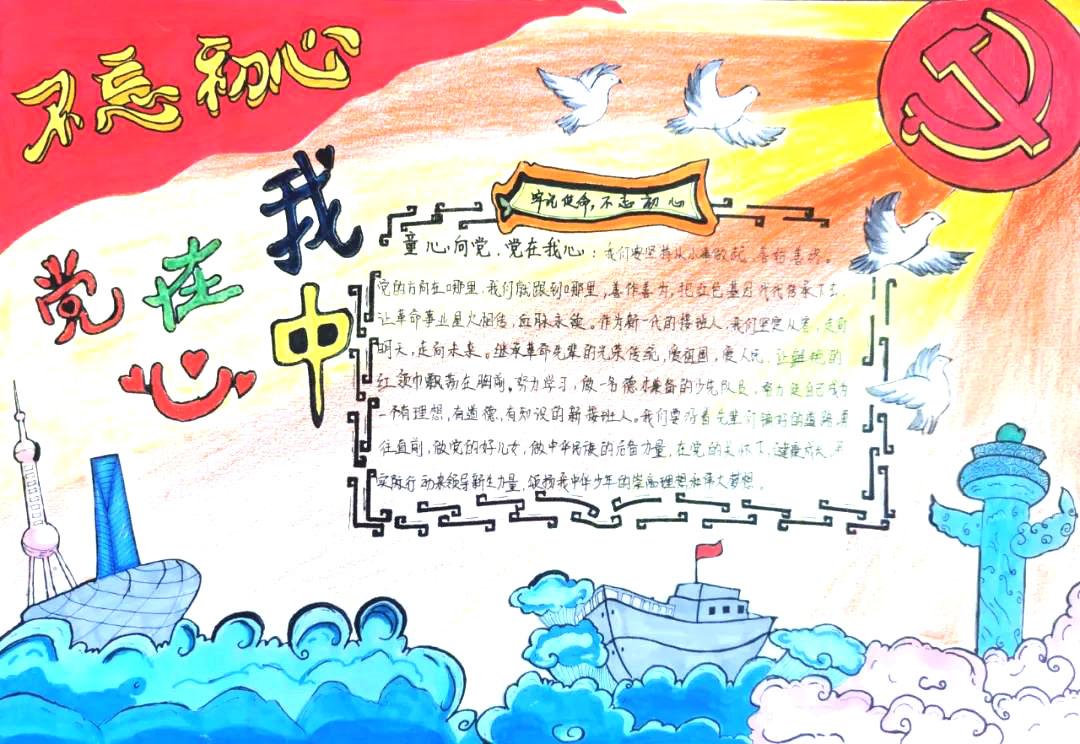 不忘初心
党在我心中
牢记使命,不忘初心
童心向党,党在我心:我们要坚持从小事做起,
党的方向在哪里,我们就跟到哪里,善作善为,把红色基因代代传承下去,
让革命事业星火相传,血脉永续。作为新一代的接班人,我们坚定从容,走向
明天,走向未来。继承革命先辈的光荣传统,爱祖国,爱人民,让鲜艳的
红领巾飘荡在胸前。努力学习,做一名德才兼备的少先队员,努力使自己成为
一个有理想,有道德,有知识的新接班人。我们要沿着先辈们铺好的道路,勇
往直前,做党的好儿女,做中华民族的后备力量,在党的关怀下,健康成长,用
实际行动来领导新生力量,颂扬我中华少年的崇高理想和伟大梦想。